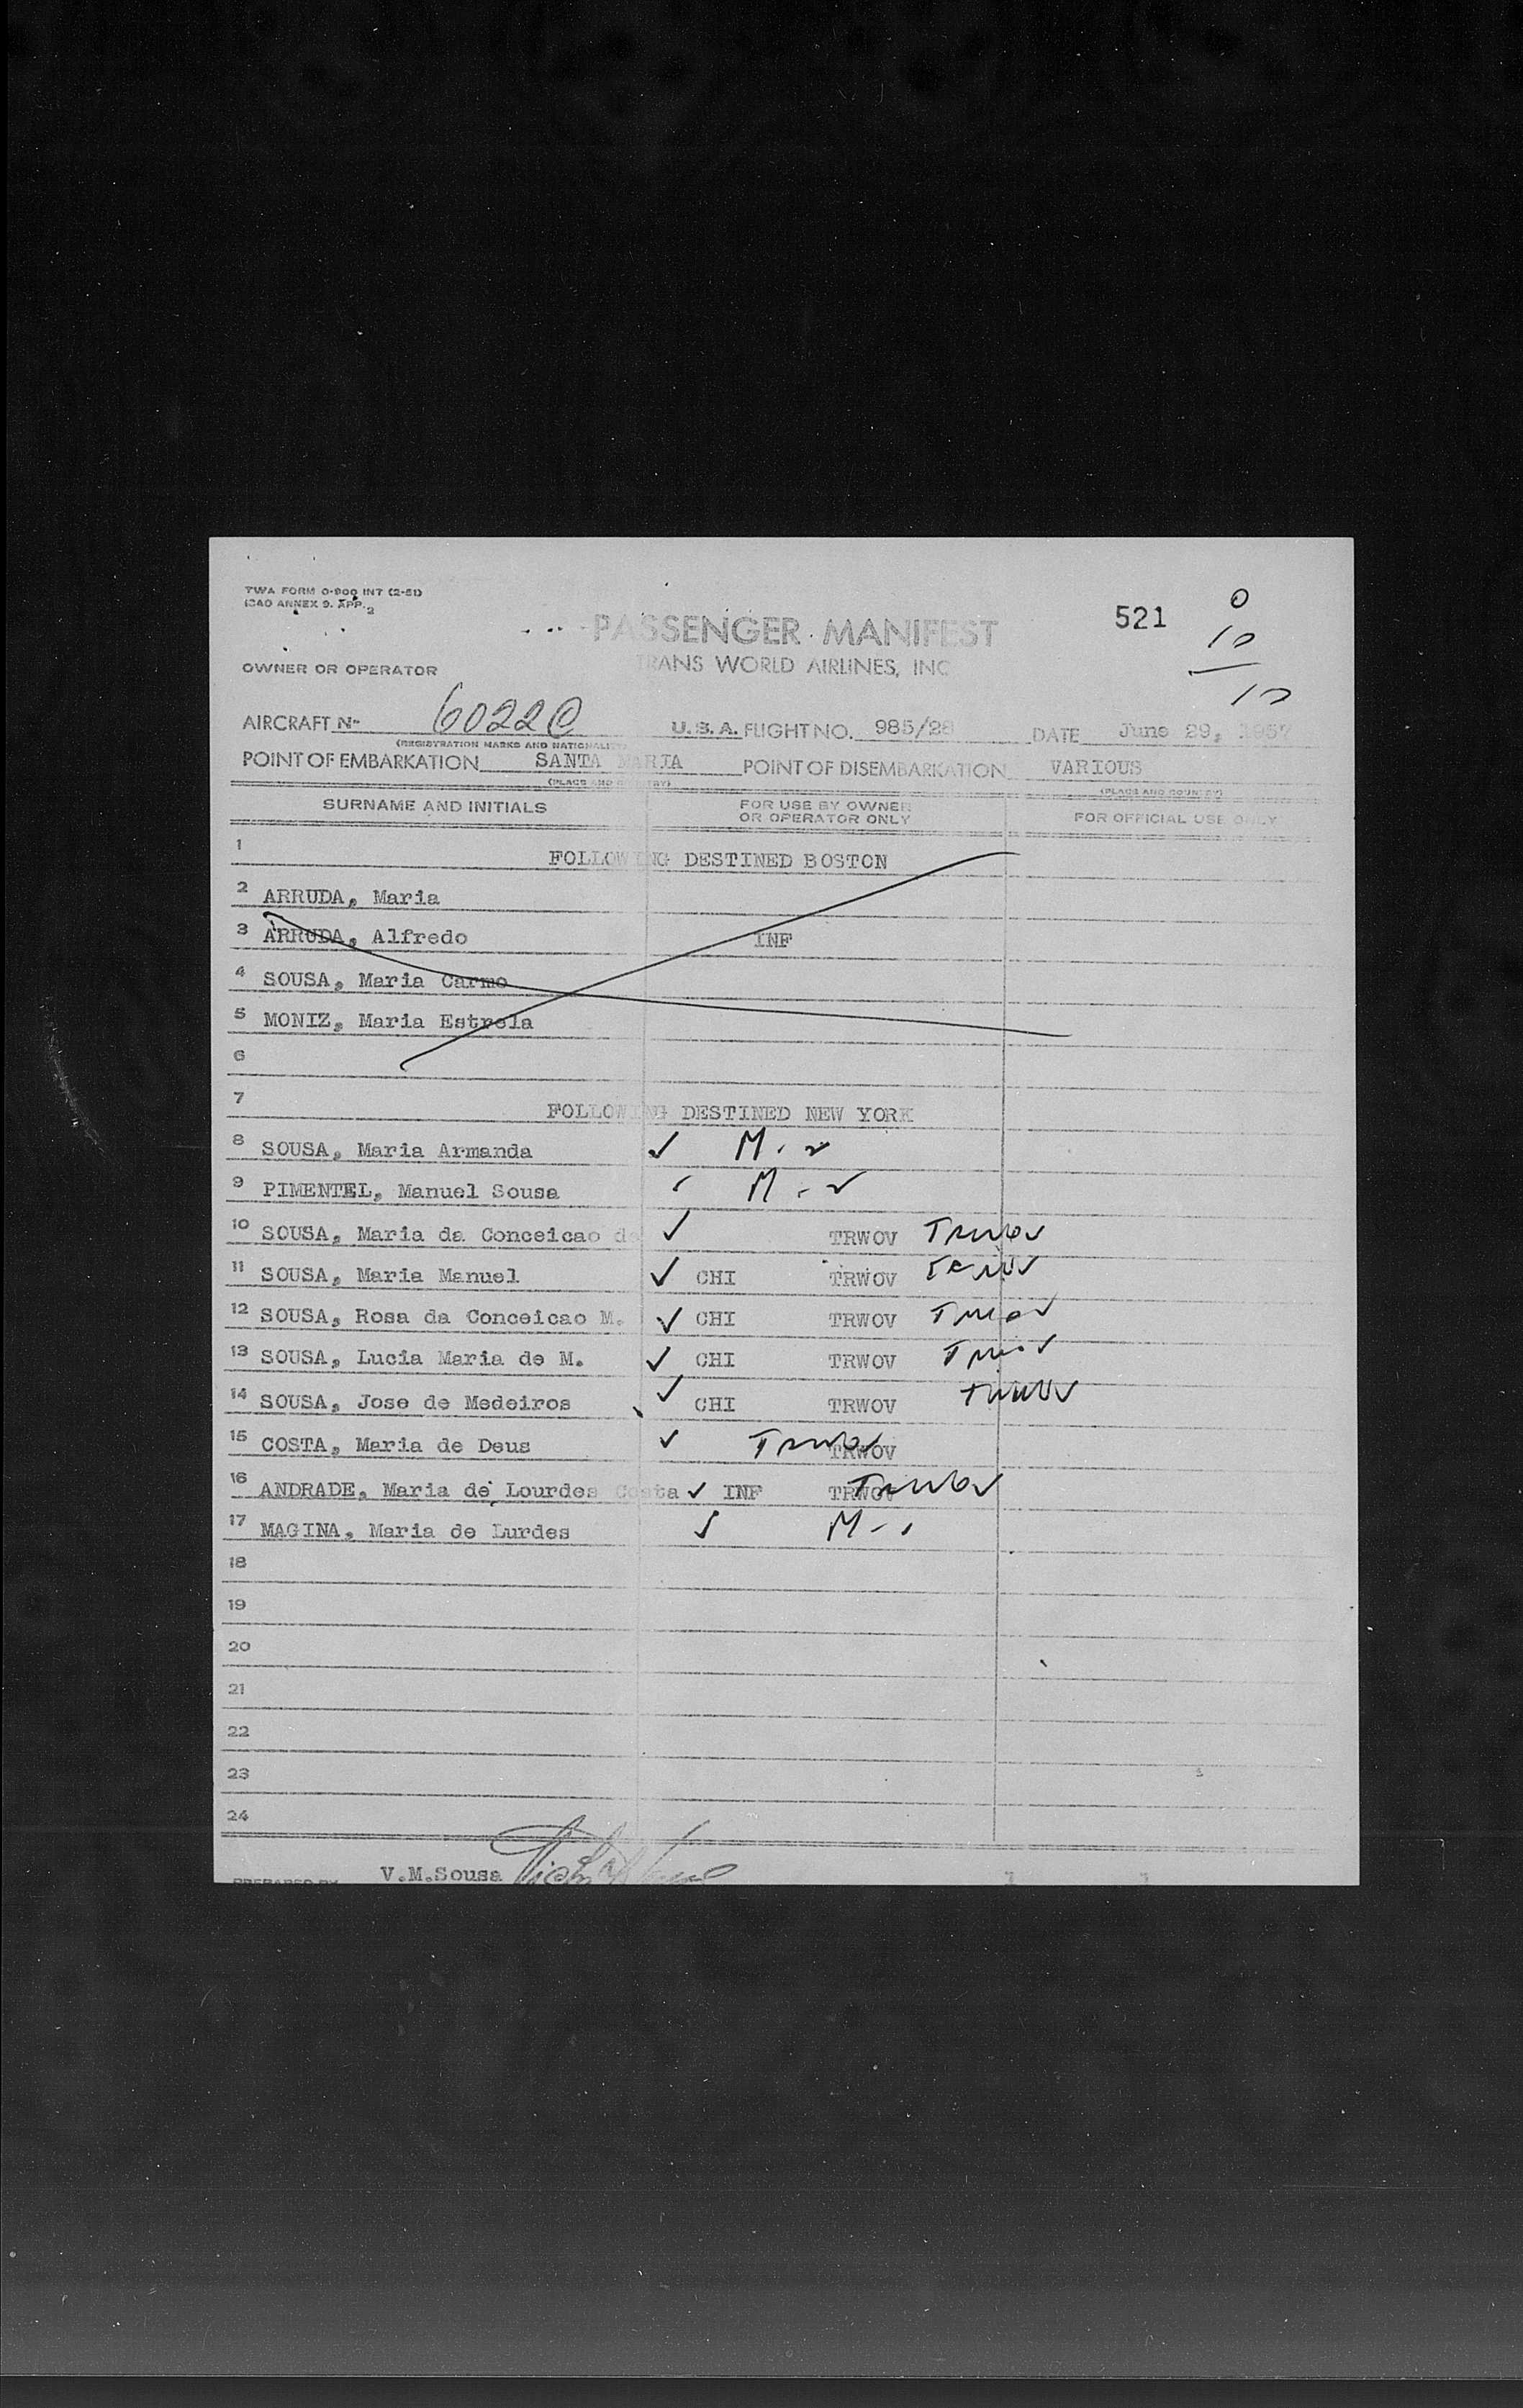 TWA FORM 0-900 INT (2-51)
ICAO ANNEX 9. APP. 2
PASSENGER MANIFEST
521
0
10
10
OWNER OR OPERATOR
TRANS WORLD AIRLINES, INC
AIRCRAFT Nº 6022C U.S.A. FLIGHT NO. 985/28 DATE June 29, 1957
(REGISTRATION MARKS AND NATIONALITY)
POINT OF EMBARKATION SANTA MARIA POINT OF DISEMBARKATION VARIOUS
(PLACE AND COUNTRY) (PLACE AND COUNTRY)
SURNAME AND INITIALS FOR USE BY OWNER OR OPERATOR ONLY FOR OFFICIAL USE ONLY
1 FOLLOWING DESTINED BOSTON
2 ARRUDA, Maria
3 ARRUDA, Alfredo INF
4 SOUSA, Maria Carmo
5 MONIZ, Maria Estrela
6
7 FOLLOWING DESTINED NEW YORK
8 SOUSA, Maria Armanda ✓ M.
9 PIMENTEL, Manuel Sousa M.
10 SOUSA, Maria da Conceicao de ✓ TRWOV TRWOV
11 SOUSA, Maria Manuel ✓ CHI TRWOV TRWOV
12 SOUSA, Rosa da Conceicao M. ✓ CHI TRWOV TRWOV
13 SOUSA, Lucia Maria de M. ✓ CHI TRWOV TRWOV
14 SOUSA, Jose de Medeiros ✓ CHI TRWOV TRWOV
15 COSTA, Maria de Deus ✓ TRWOV TRWOV
16 ANDRADE, Maria de Lourdes Costa ✓ INF TRWOV TRWOV
17 MAGINA, Maria de Lurdes ✓ M-1
18
19
20
21
22
23
24
PREPARED BY V.M.Sousa